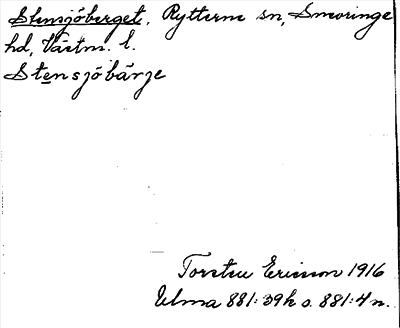 Stensjöberget, Rytterne sn, Snevringe
hd, Västm. l.
Stensjöbärje
Torsten Ericsson 1916
Ulma 881:39h s. 881:4 n.